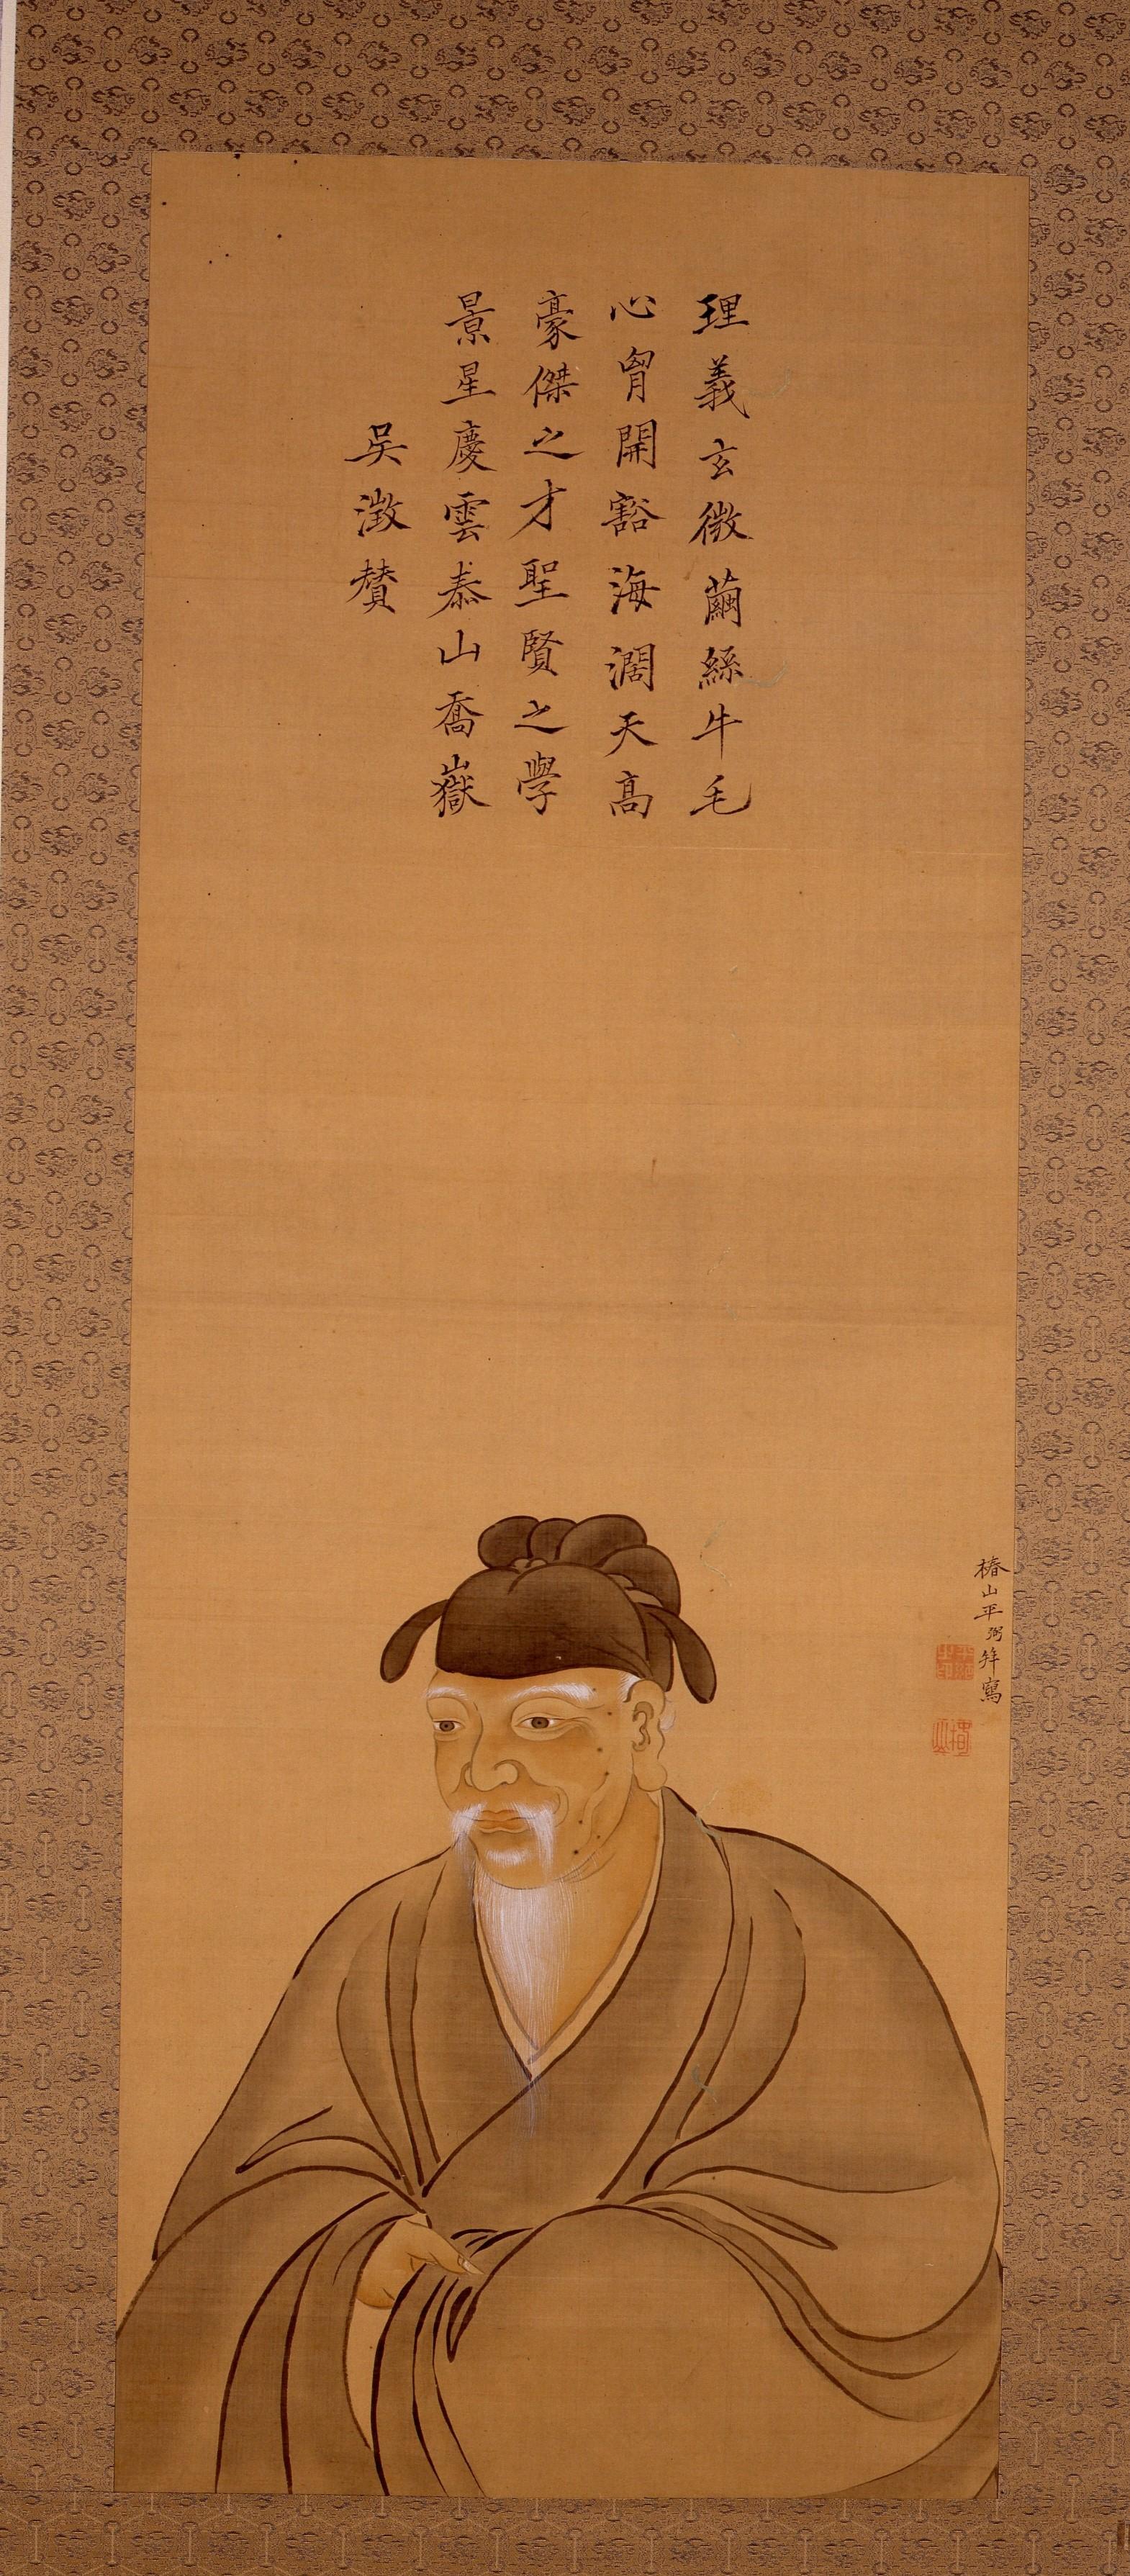 理義玄微繭絲牛毛
心胷開豁海濶天高
豪傑之才聖賢之學
景星慶雲泰山喬嶽
吴澂賛
椿山平弼拜寫